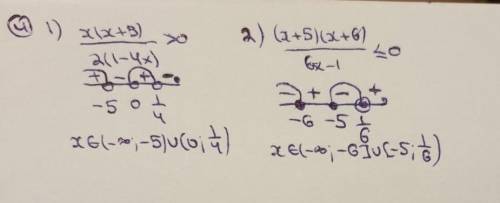 4) 1) x(x+5)/2(1-4x) >0
+ - + -
-5 0 1/4
x∈(-∞;-5)∪(0;1/4)
2) (x+5)(x+6)/6x-1 ≤0
- + - +
-6 -5 1/6
x∈(-∞;-6]∪[-5;1/6)